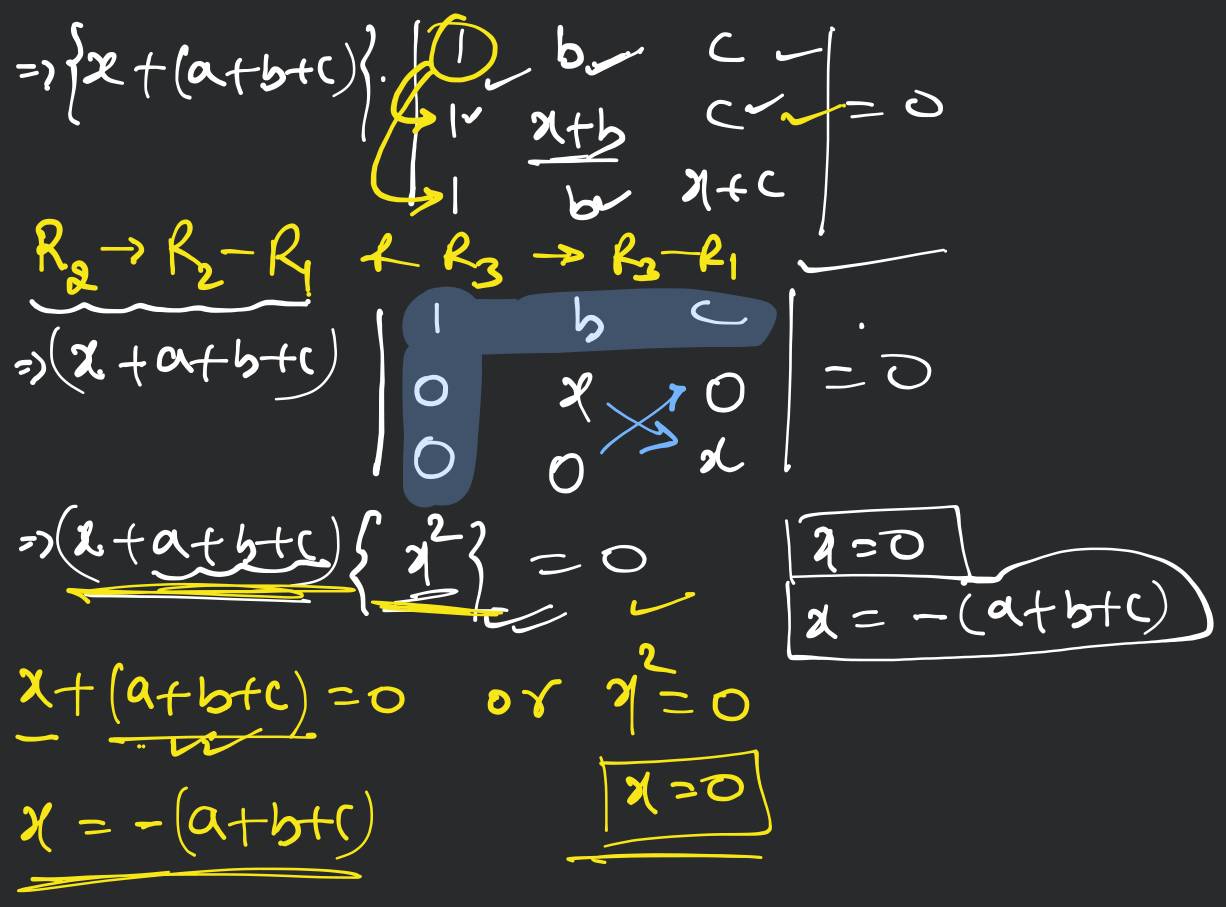 => {x + (a+b+c)}. | 1 b c |
| 1 x+b c | = 0
| 1 b x+c |
R₂ → R₂ - R₁ & R₃ → R₃ - R₁
| 1 b c |
=> (x + a+b+c) | 0 x 0 | = 0
| 0 0 x |
=> (x + a+b+c) { x² } = 0
x = 0
x = - (a+b+c)
x + (a+b+c) = 0 or x² = 0
x = 0
x = - (a+b+c)